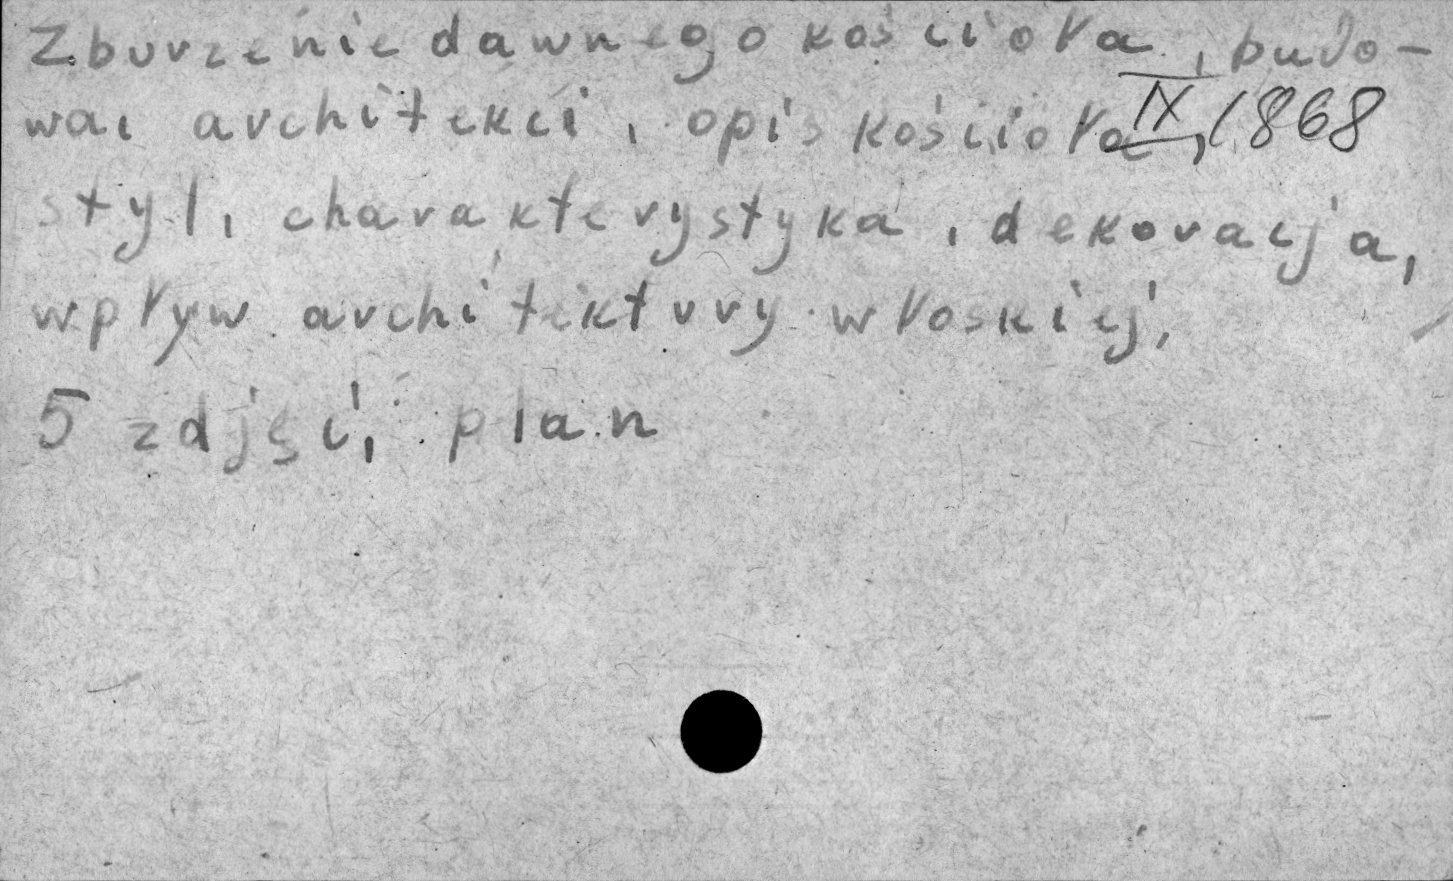 Zburzenie dawnego kościoła, budo-
wa, architekci, opis kościoła, IX, 1868
styl, charakterystyka, dekoracja,
wpływ architektury włoskiej,
5 zdjęć, plan